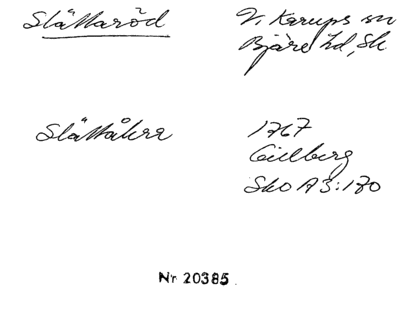 Slättaröd
V. Karups sn
Bjäre hd, Sk
Slättåkra
1767
Gillberg
Sko A3:170
Nr 20385